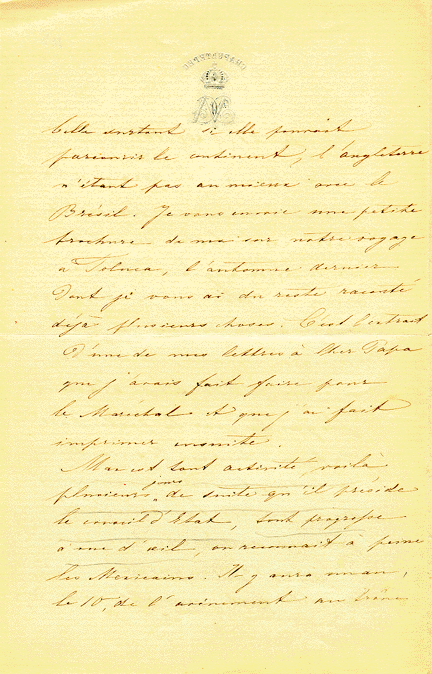 CHAPULTEPEC
Celle surtout si elle pouvait
parcourir le continent, l'angleterre
n'étant pas au mieux avec le
Brésil. Je vous envoie une petite
brochure de moi sur notre voyage
à Toluca, l'automne dernier
dont je vous ai du reste raconté
déjà plusieurs choses. C'est l'extrait
d'une de mes lettres à cher Papa
que j'avais fait faire pour
le Maréchal et que j'ai fait
imprimer ensuite.
Max est tout activité, voilà
plusieurs jours de suite qu'il préside
le conseil d'Etat, tout progresse
à vue d'œil, on reconnait à peine
les Mexicains. Il y aura un an,
le 10, de l'avènement au trône